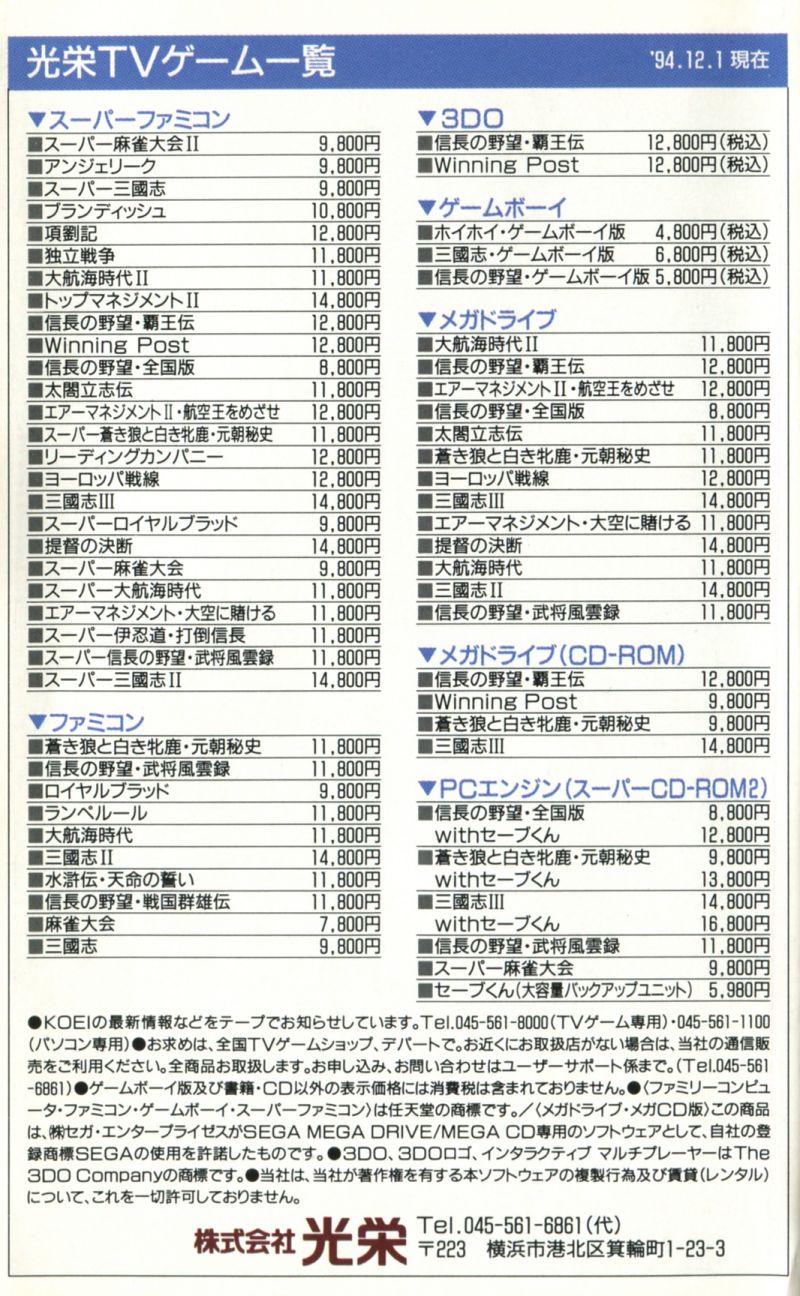 光栄TVゲーム一覧 '94.12.1 現在
▼スーパーファミコン
■スーパー麻雀大会II 9,800円
■アンジェリーク 9,800円
■スーパー三國志 9,800円
■ブランディッシュ 10,800円
■項劉記 12,800円
■独立戦争 11,800円
■大航海時代II 11,800円
■トップマネジメントII 14,800円
■信長の野望・覇王伝 12,800円
■Winning Post 12,800円
■信長の野望・全国版 8,800円
■太閤立志伝 11,800円
■エアーマネジメントII・航空王をめざせ 12,800円
■スーパー蒼き狼と白き牝鹿・元朝秘史 11,800円
■リーディングカンパニー 12,800円
■ヨーロッパ戦線 12,800円
■三國志III 14,800円
■スーパーロイヤルブラッド 9,800円
■提督の決断 14,800円
■スーパー麻雀大会 9,800円
■スーパー大航海時代 11,800円
■エアーマネジメント・大空に賭ける 11,800円
■スーパー伊忍道・打倒信長 11,800円
■スーパー信長の野望・武将風雲録 11,800円
■スーパー三國志II 14,800円
▼ファミコン
■蒼き狼と白き牝鹿・元朝秘史 11,800円
■信長の野望・武将風雲録 11,800円
■ロイヤルブラッド 9,800円
■ランペルール 11,800円
■大航海時代 11,800円
■三國志II 14,800円
■水滸伝・天命の誓い 11,800円
■信長の野望・戦国群雄伝 11,800円
■麻雀大会 7,800円
■三國志 9,800円
▼3DO
■信長の野望・覇王伝 12,800円(税込)
■Winning Post 12,800円(税込)
▼ゲームボーイ
■ホイホイ・ゲームボーイ版 4,800円(税込)
■三國志・ゲームボーイ版 6,800円(税込)
■信長の野望・ゲームボーイ版 5,800円(税込)
▼メガドライブ
■大航海時代II 11,800円
■信長の野望・覇王伝 12,800円
■エアーマネジメントII・航空王をめざせ 12,800円
■信長の野望・全国版 8,800円
■太閤立志伝 11,800円
■蒼き狼と白き牝鹿・元朝秘史 11,800円
■ヨーロッパ戦線 12,800円
■三國志III 14,800円
■エアーマネジメント・大空に賭ける 11,800円
■提督の決断 14,800円
■大航海時代 11,800円
■三國志II 14,800円
■信長の野望・武将風雲録 11,800円
▼メガドライブ(CD-ROM)
■信長の野望・覇王伝 12,800円
■Winning Post 9,800円
■蒼き狼と白き牝鹿・元朝秘史 9,800円
■三國志III 14,800円
▼PCエンジン(スーパーCD-ROM2)
■信長の野望・全国版 8,800円
withセーブくん 12,800円
■蒼き狼と白き牝鹿・元朝秘史 9,800円
withセーブくん 13,800円
■三國志III 14,800円
withセーブくん 16,800円
■信長の野望・武将風雲録 11,800円
■スーパー麻雀大会 9,800円
■セーブくん(大容量バックアップユニット) 5,980円
●KOEIの最新情報などをテープでお知らせしています。Tel.045-561-8000(TVゲーム専用)・045-561-1100
(パソコン専用)●お求めは、全国TVゲームショップ、デパートで。お近くにお取扱店がない場合は、当社の通信販
売をご利用ください。全商品お取扱します。お申し込み、お問い合わせはユーザーサポート係まで。(Tel.045-561
-6861)●ゲームボーイ版及び書籍・CD以外の表示価格には消費税は含まれておりません。●〈ファミリーコンピュ
ータ・ファミコン・ゲームボーイ・スーパーファミコン〉は任天堂の商標です。／〈メガドライブ・メガCD版〉この商品
は、㈱セガ・エンタープライゼスがSEGA MEGA DRIVE/MEGA CD専用のソフトウェアとして、自社の登
録商標SEGAの使用を許諾したものです。●3DO、3DOロゴ、インタラクティブ マルチプレーヤーはThe
3DO Companyの商標です。●当社は、当社が著作権を有する本ソフトウェアの複製行為及び賃貸(レンタル)
について、これを一切許可しておりません。
株式会社 光栄
Tel.045-561-6861(代)
〒223 横浜市港北区箕輪町1-23-3